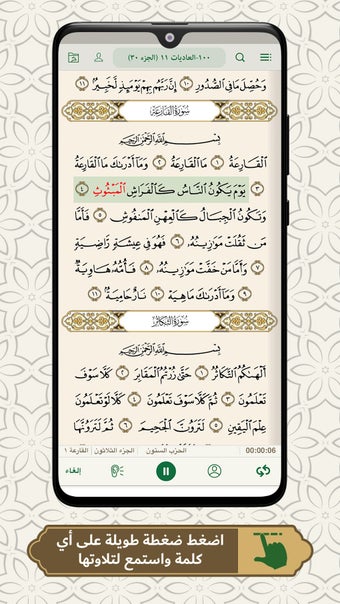 ١٠٠-العاديات ١١ (الجزء ٣٠)
وَحُصِّلَ مَا فِي الصُّدُورِ ١٠ إِنَّ رَبَّهُم بِهِمْ يَوْمَئِذٍ لَّخَبِيرٌ ١١
سُورَةُ القَارِعَةِ
بِسْمِ اللَّهِ الرَّحْمَٰنِ الرَّحِيمِ
الْقَارِعَةُ ١ مَا الْقَارِعَةُ ٢ وَمَا أَدْرَىٰكَ مَا الْقَارِعَةُ
٣ يَوْمَ يَكُونُ النَّاسُ كَالْفَرَاشِ الْمَبْثُوثِ ٤
وَتَكُونُ الْجِبَالُ كَالْعِهْنِ الْمَنفُوشِ ٥ فَأَمَّا
مَن ثَقُلَتْ مَوَٰزِينُهُ ٦ فَهُوَ فِي عِيشَةٍ رَّاضِيَةٍ
٧ وَأَمَّا مَنْ خَفَّتْ مَوَٰزِينُهُ ٨ فَأُمُّهُ هَاوِيَةٌ
٩ وَمَا أَدْرَىٰكَ مَا هِيَهْ ١٠ نَارٌ حَامِيَةٌ ١١
سُورَةُ التَّكَاثُرِ
بِسْمِ اللَّهِ الرَّحْمَٰنِ الرَّحِيمِ
أَلْهَىٰكُمُ التَّكَاثُرُ ١ حَتَّىٰ زُرْتُمُ الْمَقَابِرَ ٢ كَلَّا سَوْفَ
تَعْلَمُونَ ٣ ثُمَّ كَلَّا سَوْفَ تَعْلَمُونَ ٤ كَلَّا لَوْ تَعْلَمُونَ
عِلْمَ الْيَقِينِ ٥ لَتَرَوُنَّ الْجَحِيمَ ٦ ثُمَّ لَتَرَوُنَّهَا
القارعة ١ الجزء الثلاثون الحزب الستون 00:00:06
إلغاء
اضغط ضغطة طويلة على أي
كلمة واستمع لتلاوتها